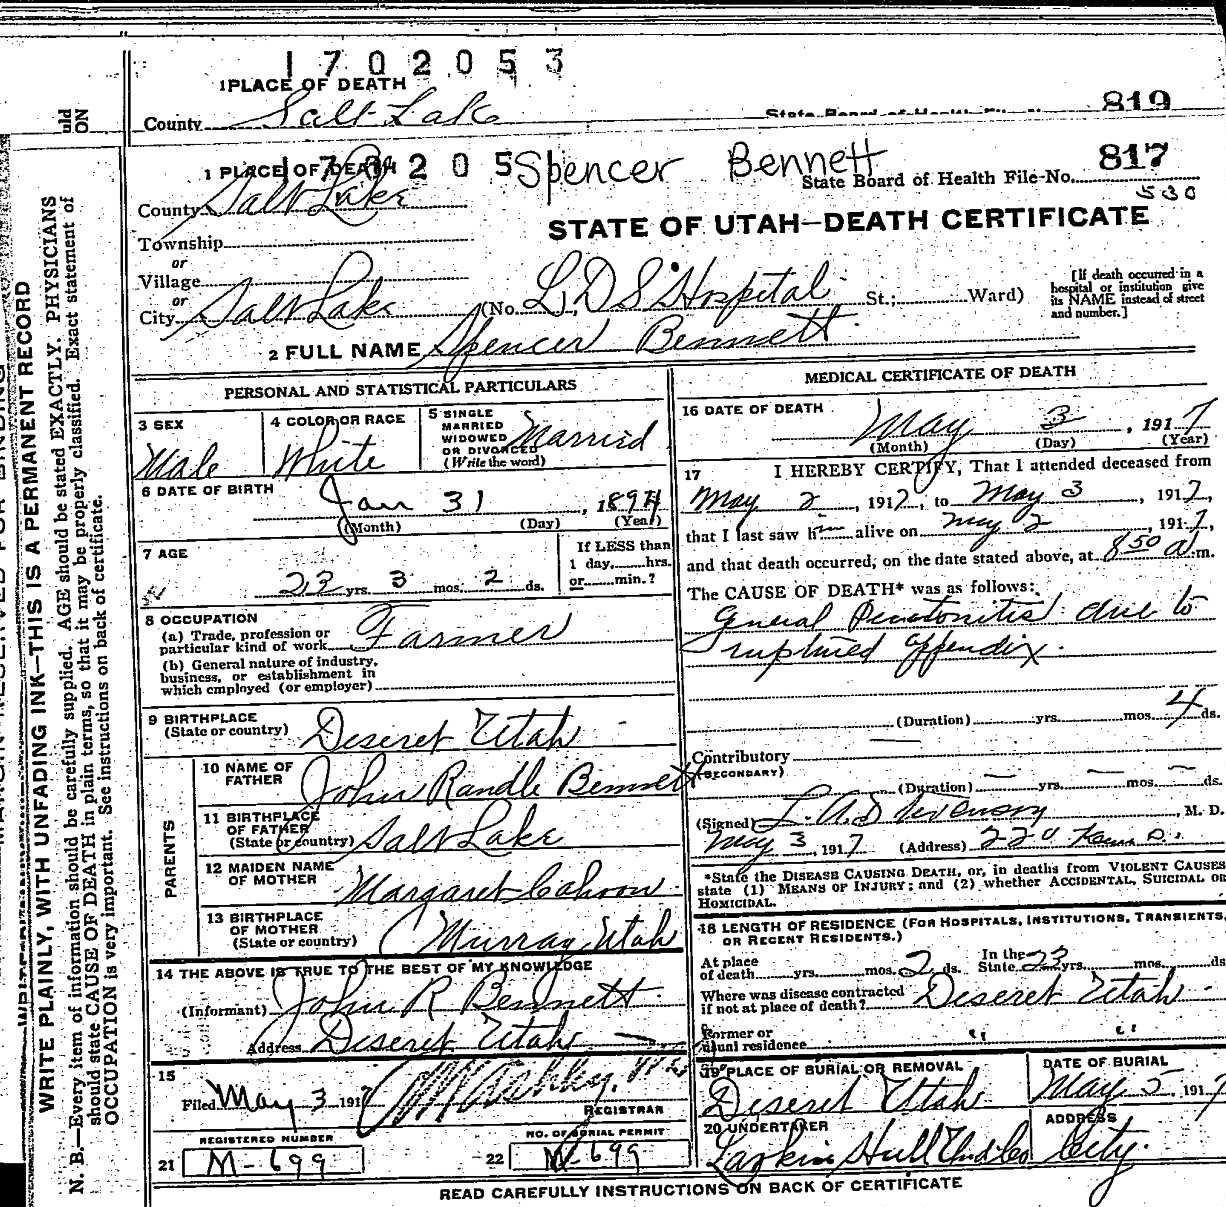 1702053
1 PLACE OF DEATH
County Salt Lake
819
1 PLACE OF DEATH
Spencer Bennett
817
State Board of Health File No.
530
County Salt Lake
STATE OF UTAH—DEATH CERTIFICATE
Township
or
Village
or
City Salt Lake (No. L.D.S Hospital St.; Ward)
[If death occurred in a
hospital or institution give
its NAME instead of street
and number.]
2 FULL NAME Spencer Bennett
PERSONAL AND STATISTICAL PARTICULARS
3 SEX
Male
4 COLOR OR RACE
White
5 SINGLE
MARRIED
WIDOWED
OR DIVORCED
(Write the word)
Married
6 DATE OF BIRTH
Jan 31, 1894
(Month) (Day) (Year)
7 AGE
23 yrs. 3 mos. 2 ds.
If LESS than
1 day, hrs.
or min.?
8 OCCUPATION
(a) Trade, profession or
particular kind of work Farmer
(b) General nature of industry,
business, or establishment in
which employed (or employer)
9 BIRTHPLACE
(State or country) Deseret Utah
PARENTS
10 NAME OF
FATHER John Randle Bennett
11 BIRTHPLACE
OF FATHER
(State or country) Salt Lake
12 MAIDEN NAME
OF MOTHER Margaret Cahoon
13 BIRTHPLACE
OF MOTHER
(State or country) Murray Utah
14 THE ABOVE IS TRUE TO THE BEST OF MY KNOWLEDGE
(Informant) John R Bennett
Address Deseret Utah
15
Filed May 3 1917
REGISTRAR
REGISTERED NUMBER
21 M-699
NO. OF BURIAL PERMIT
22 M-699
MEDICAL CERTIFICATE OF DEATH
16 DATE OF DEATH May 3, 1917
(Month) (Day) (Year)
17 I HEREBY CERTIFY, That I attended deceased from
May 2, 1917, to May 3, 1917,
that I last saw him alive on May 2, 1917,
and that death occurred, on the date stated above, at 8 50 a. m.
The CAUSE OF DEATH* was as follows:
General Peritonitis due to
ruptured appendix.
(Duration) yrs. mos. 4 ds.
Contributory
(SECONDARY)
(Duration) yrs. mos. ds.
(Signed) L. A. Stevenson, M. D.
May 3, 1917 (Address) 220
*State the DISEASE CAUSING DEATH, or, in deaths from VIOLENT CAUSES
state (1) MEANS OF INJURY; and (2) whether ACCIDENTAL, SUICIDAL OR
HOMICIDAL.
18 LENGTH OF RESIDENCE (FOR HOSPITALS, INSTITUTIONS, TRANSIENTS,
OR RECENT RESIDENTS.)
At place
of death yrs. mos. 2 ds. In the
State 23 yrs. mos. ds
Where was disease contracted
if not at place of death? Deseret Utah
Former or
usual residence " "
19 PLACE OF BURIAL OR REMOVAL
Deseret Utah
DATE OF BURIAL
May 5 1917
20 UNDERTAKER
Larkin Hull Und Co
ADDRESS
City
READ CAREFULLY INSTRUCTIONS ON BACK OF CERTIFICATE
WRITE PLAINLY, WITH UNFADING INK—THIS IS A PERMANENT RECORD
N. B.—Every item of information should be carefully supplied. AGE should be stated EXACTLY. PHYSICIANS
should state CAUSE OF DEATH in plain terms, so that it may be properly classified. Exact statement of
OCCUPATION is very important. See instructions on back of certificate.